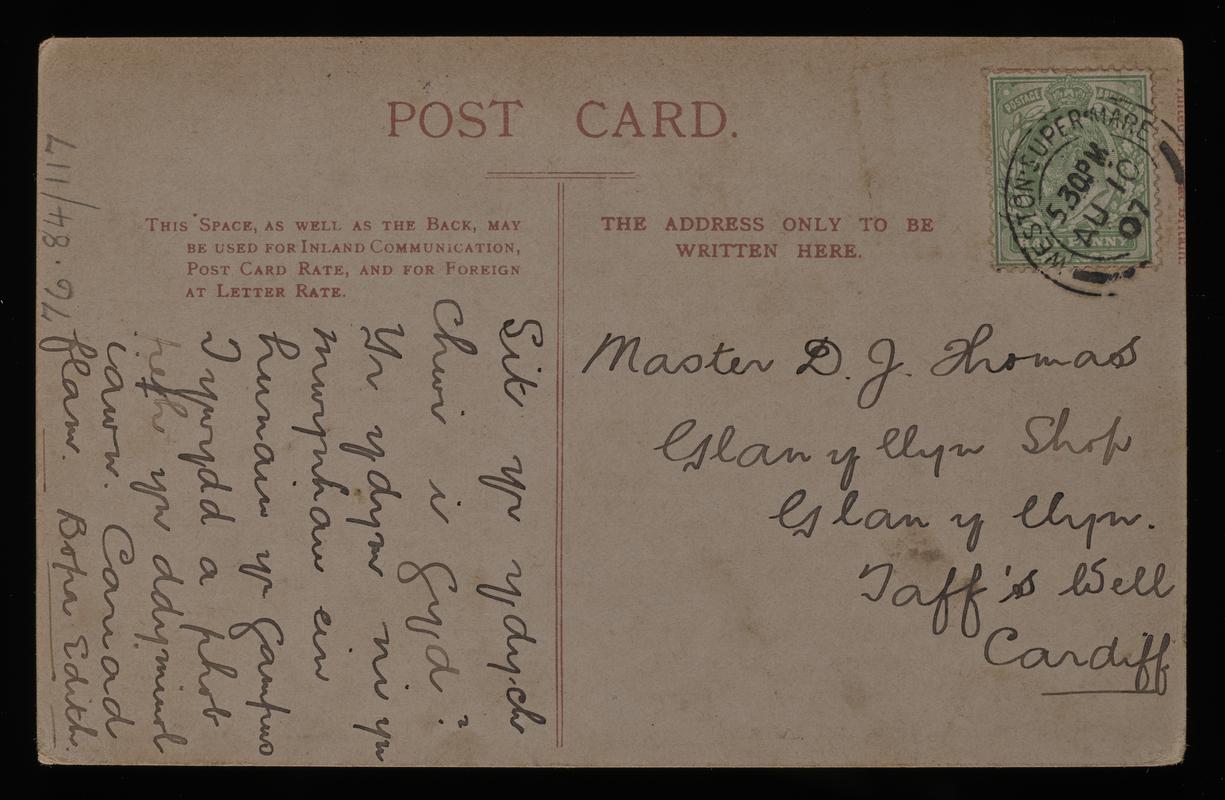 POST CARD.
THIS SPACE, AS WELL AS THE BACK, MAY
BE USED FOR INLAND COMMUNICATION,
POST CARD RATE, AND FOR FOREIGN
AT LETTER RATE.
THE ADDRESS ONLY TO BE
WRITTEN HERE.
POSTAGE
PENNY
WESTON-SUPER-MARE
5.30PM
AU 10
07
Sut yr ydych
chwi i gyd?
Yr ydym ni yn
mwynhau ein
hunain yn gampus
Tywydd a phob
peth yn ddymunol
iawn. Cariad
Bopa Edith.
Master D. J. Thomas
Glan y llyn Shop
Glan y llyn.
Taff's Well
Cardiff
76.84/117